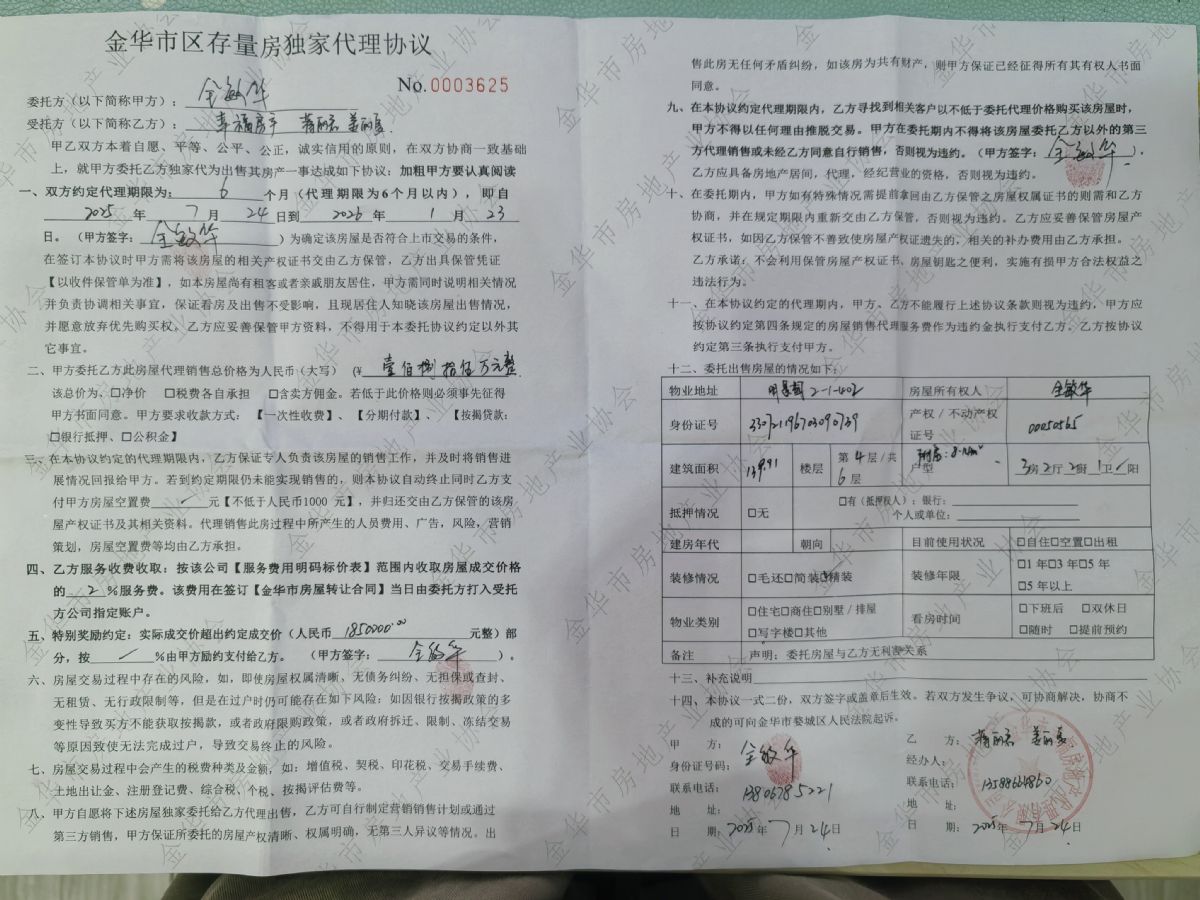 金华市区存量房独家代理协议
No.0003625
委托方（以下简称甲方）：金敏华
受托方（以下简称乙方）：幸福房产 蒋丽君 姜丽
甲乙双方本着自愿、平等、公平、公正，诚实信用的原则，在双方协商一致基础
上，就甲方委托乙方独家代为出售其房产一事达成如下协议：加粗甲方要认真阅读
一、双方约定代理期限为：6个月（代理期限为6个月以内），即自
2025年7月24日到2026年1月23
日。（甲方签字：金敏华）为确定该房屋是否符合上市交易的条件，
在签订本协议时甲方需将该房屋的相关产权证书交由乙方保管，乙方出具保管凭证
【以收件保管单为准】，如本房屋尚有租客或者亲戚朋友居住，甲方需同时说明相关情况
并负责协调相关事宜，保证看房及出售不受影响，且现居住人知晓该房屋出售情况，
并愿意放弃优先购买权。乙方应妥善保管甲方资料，不得用于本委托协议约定以外其
它事宜。
二、甲方委托乙方此房屋代理销售总价格为人民币（大写）（¥壹佰捌拾伍万元整
该总价为、☐净价 ☐税费各自承担 ☐含卖方佣金。若低于此价格则必须事先征得
甲方书面同意。甲方要求收款方式：【一次性收费】、【分期付款】、【按揭贷款：
☐银行抵押、☐公积金】
三、在本协议约定的代理期限内，乙方保证专人负责该房屋的销售工作，并及时将销售进
展情况回报给甲方。若到约定期限仍未能实现销售的，则本协议自动终止同时乙方支
付甲方房屋空置费 / 元【不低于人民币1000 元】，并归还交由乙方保管的该房
屋产权证书及其相关资料。代理销售此房过程中所产生的人员费用、广告，风险，营销
策划，房屋空置费等均由乙方承担。
四、乙方服务收费收取：按该公司【服务费用明码标价表】范围内收取房屋成交价格
的 2 %服务费。该费用在签订【金华市房屋转让合同】当日由委托方打入受托
方公司指定账户。
五、特别奖励约定：实际成交价超出约定成交价（人民币 1850000.00 元整）部
分，按 / %由甲方励约支付给乙方。（甲方签字：金敏华）。
六、房屋交易过程中存在的风险，如，即使房屋权属清晰、无债务纠纷、无担保或查封、
无租赁、无行政限制等，但是在过户时仍可能存在如下风险：如因银行按揭政策的多
变性导致买方不能获取按揭款，或者政府限购政策，或者政府拆迁、限制、冻结交易
等原因致使无法完成过户，导致交易终止的风险。
七、房屋交易过程中会产生的税费种类及金额，如：增值税、契税、印花税、交易手续费、
土地出让金、注册登记费、综合税、个税、按揭评估费等。
八、甲方自愿将下述房屋独家委托给乙方代理出售，乙方可自行制定营销销售计划或通过
第三方销售，甲方保证所委托的房屋产权清晰、权属明确，无第三人异议等情况。出
售此房无任何矛盾纠纷，如该房为共有财产，则甲方保证已经征得所有其有权人书面
同意。
九、在本协议约定代理期限内，乙方寻找到相关客户以不低于委托代理价格购买该房屋时，
甲方不得以任何理由推脱交易。甲方在委托期内不得将该房屋委托乙方以外的第三
方代理销售或未经乙方同意自行销售，否则视为违约。（甲方签字：金敏华）。
乙方应具备房地产居间，代理，经纪营业的资格，否则视为违约。
十、在委托期内，甲方如有特殊情况需提前拿回由乙方保管之房屋权属证书的则需和乙方
协商，并在规定期限内重新交由乙方保管，否则视为违约。乙方应妥善保管房屋产
权证书，如因乙方保管不善致使房屋产权证遗失的，相关的补办费用由乙方承担。
乙方承诺：不会利用保管房屋产权证书、房屋钥匙之便利，实施有损甲方合法权益之
违法行为。
十一、在本协议约定的代理期内，甲方、乙方不能履行上述协议条款则视为违约，甲方应
按协议约定第四条规定的房屋销售代理服务费作为违约金执行支付乙方。乙方按协议
约定第三条执行支付甲方。
十二、委托出售房屋的情况如下：
物业地址 2-1-402 房屋所有权人 金敏华
身份证号 330721196703090739 产权/不动产权证号 00050565
建筑面积 139.91 楼层 第4层/共6层 附属：8.18m² 户型 3房2厅2厨1卫/阳
抵押情况 ☐无 ☐有（抵押权人）：银行：
个人或单位：
建房年代 朝向 目前使用状况 ☐自住☐空置☐出租
装修情况 ☐毛还☐简装☐精装 装修年限 ☐1年☐3年☐5年
☐5年以上
物业类别 ☐住宅☐商住☐别墅/排屋 看房时间 ☐下班后 ☐双休日
☐写字楼☐其他 ☐随时 ☐提前预约
备注 声明：委托房屋与乙方无利害关系
十三、补充说明
十四、本协议一式二份，双方签字或盖章后生效。若双方发生争议，可协商解决，协商不
成的可向金华市婺城区人民法院起诉。
甲 方：金敏华 乙 方：蒋丽君 姜丽
身份证号码： 经办人：
联系电话：13806785221 联系电话：13588664860
地 址： 地 址：
日 期：2025年7月24日 日 期：2025年7月24日